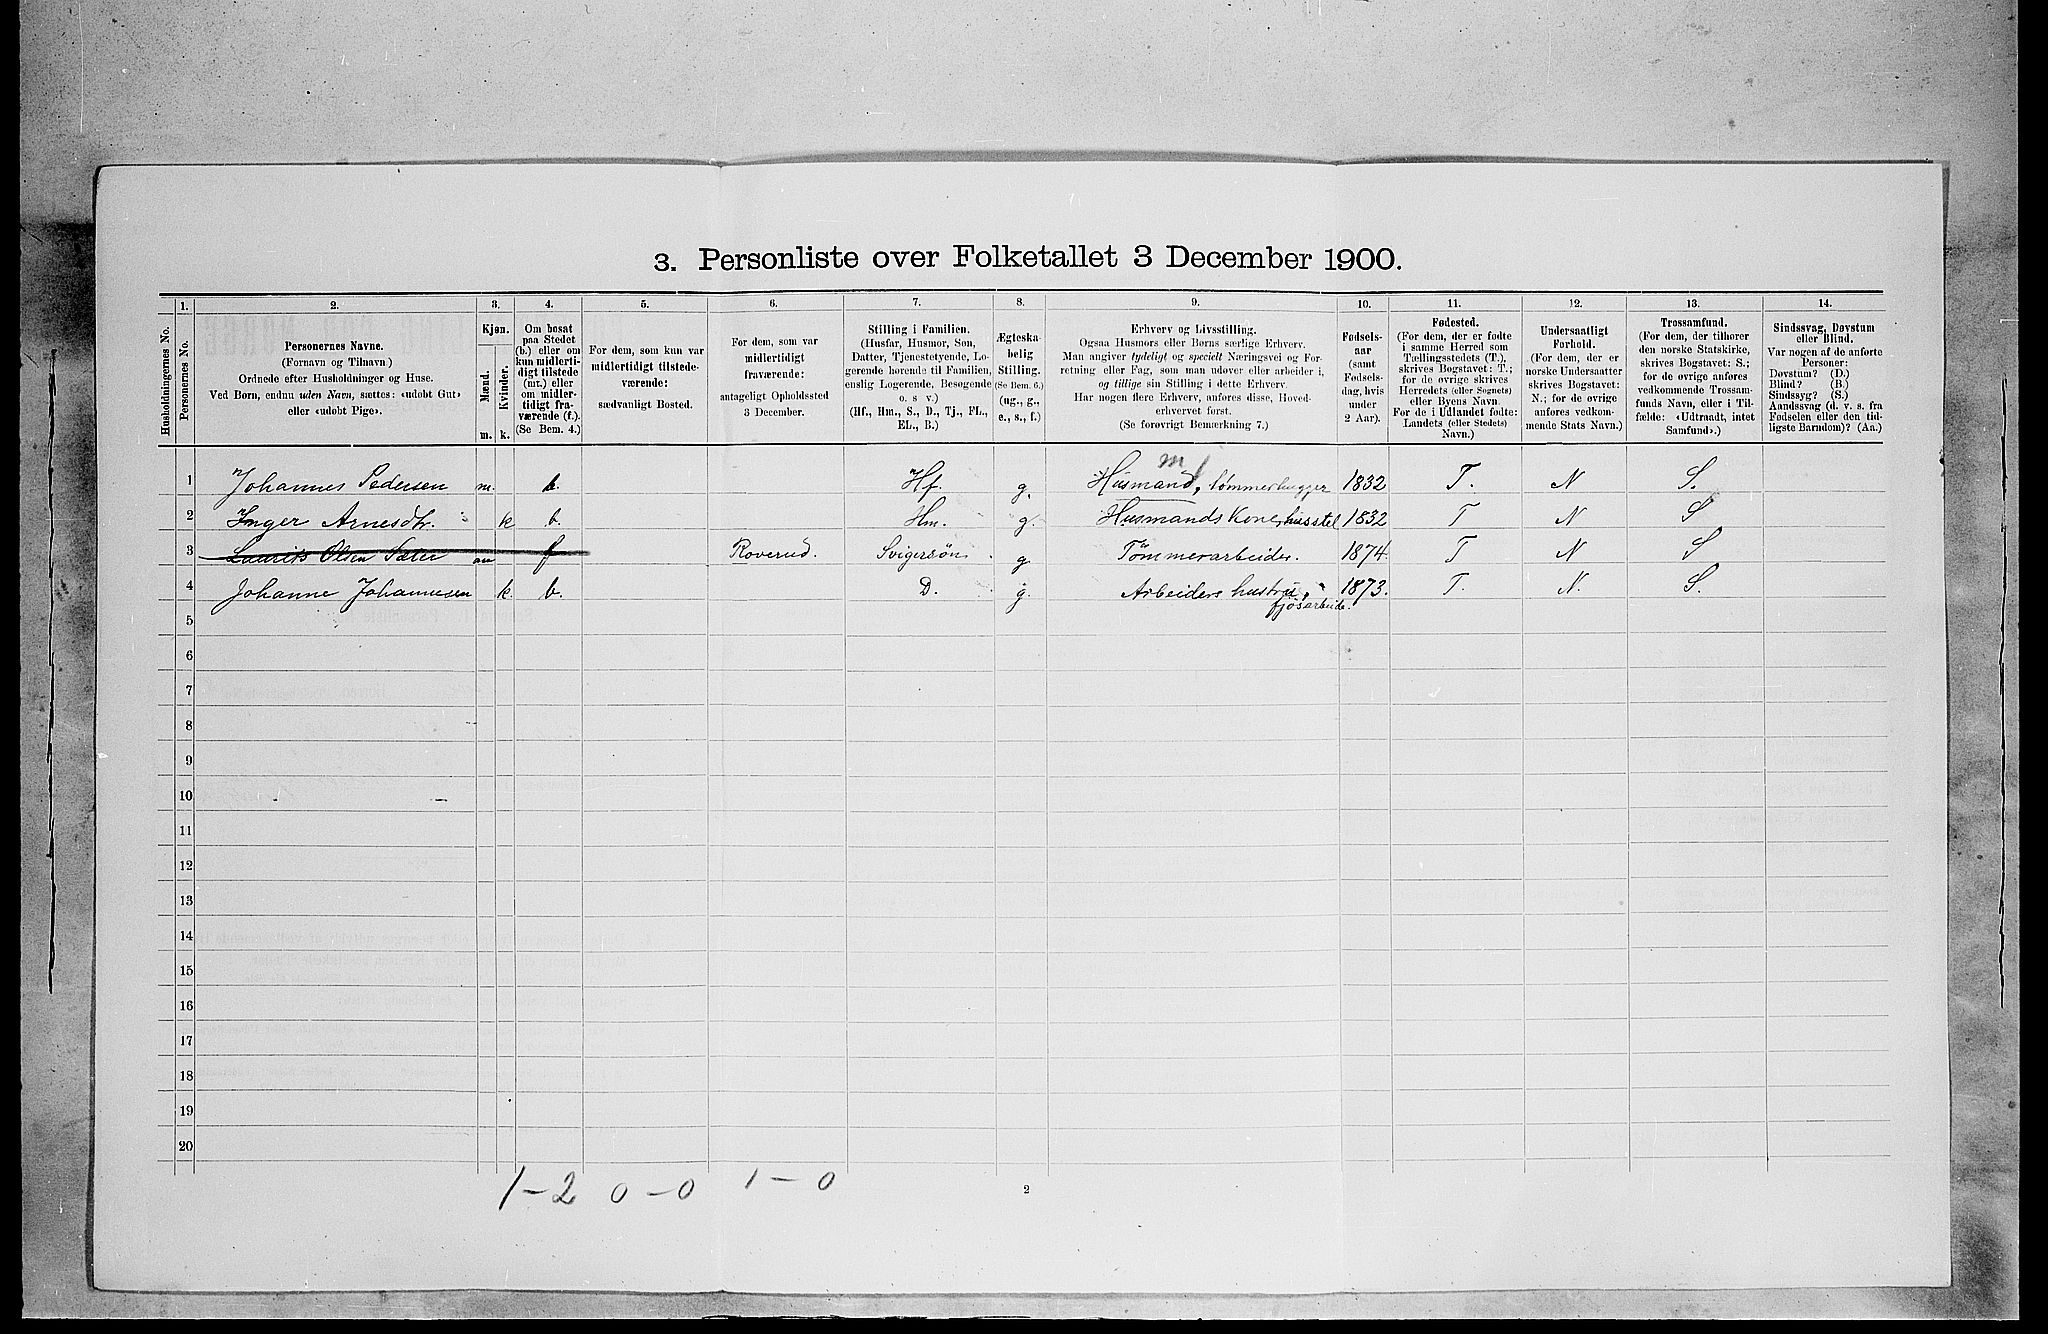 3. Personliste over Folketallet 3 December 1900.
1. 2. 3. 4. 5. 6. 7. 8. 9. 10. 11. 12. 13. 14.
Husholdningernes No.
Personernes No.
Personernes Navne.
(Fornavn og Tilnavn.)
Ordnede efter Husholdninger og Huse.
Ved Børn, endnu uden Navn, sættes: «udøbt Gut»
eller «udøbt Pige».
Kjøn.
Mænd.
Kvinder.
m. k.
Om bosat
paa Stedet
(b.) eller om
kun midlerti-
digt tilstede
(mt.) eller
om midler-
tidigt fra-
værende (f.).
(Se Bem. 4.)
For dem, som kun var
midlertidigt tilstede-
værende:
sædvanligt Bosted.
For dem, som var
midlertidigt
fraværende:
antageligt Opholdssted
3 December.
Stilling i Familien.
(Husfar, Husmor, Søn,
Datter, Tjenestetyende, Lo-
gerende hørende til Familien,
enslig Logerende, Besøgende
o. s v.)
(Hf., Hm., S., D., Tj., FL.,
EL., B.)
Ægteska-
belig
Stilling.
(Se Bem. 6.)
(ug., g.,
e., s., f.)
Erhverv og Livsstilling.
Ogsaa Husmors eller Børns særlige Erhverv.
Man angiver tydeligt og specielt Næringsvei og For-
retning eller Fag, som man udøver eller arbeider i,
og tillige sin Stilling i dette Erhverv.
Har nogen flere Erhverv, anføres disse, Hoved-
erhvervet først.
(Se forøvrigt Bemærkning 7.)
Fødsels-
aar
(samt
Fødsels-
dag, hvis
under
2 Aar).
Fødested.
(For dem, der er fødte
i samme Herred som
Tællingsstedets (T.),
skrives Bogstavet: T.;
for de øvrige skrives
Herredets (eller Sognets)
eller Byens Navn.
For de i Udlandet fødte:
Landets (eller Stedets)
Navn.)
Undersaatligt
Forhold.
(For dem, der er
norske Undersaatter
skrives Bogstavet:
N.; for de øvrige
anføres vedkom-
mende Stats Navn.)
Trossamfund.
(For dem, der tilhører
den norske Statskirke,
skrives Bogstavet: S.;
for de øvrige anføres
vedkommende Trossam-
funds Navn, eller i Til-
fælde: «Udtraadt, intet
Samfund».)
Sindssvag, Døvstum
eller Blind.
Var nogen af de anførte
Personer:
Døvstum? (D.)
Blind? (B.)
Sindssyg? (S.)
Aandssvag (d. v. s. fra
Fødselen eller den tid-
ligste Barndom)? (Aa.)
m
1 Johannes Pedersen m. b. Hf. g. Husmand, tømmerhugger 1832 T. N S.
2 Inger Arnesdtr. k b. Hm. g. Husmands Kone, husstel 1832 T N S
3 Laurits Olsen Sæter m f Roverud. Svigersön g Tömmerarbeider. 1874 T N S
4 Johanne Johannesen k. b. D. g. Arbeiders hustru, 1873. T. N. S.
fjösarbeide.
5
6
7
8
9
10
11
12
13
14
15
16
17
18
19
20
1-2 0-0 1-0
2